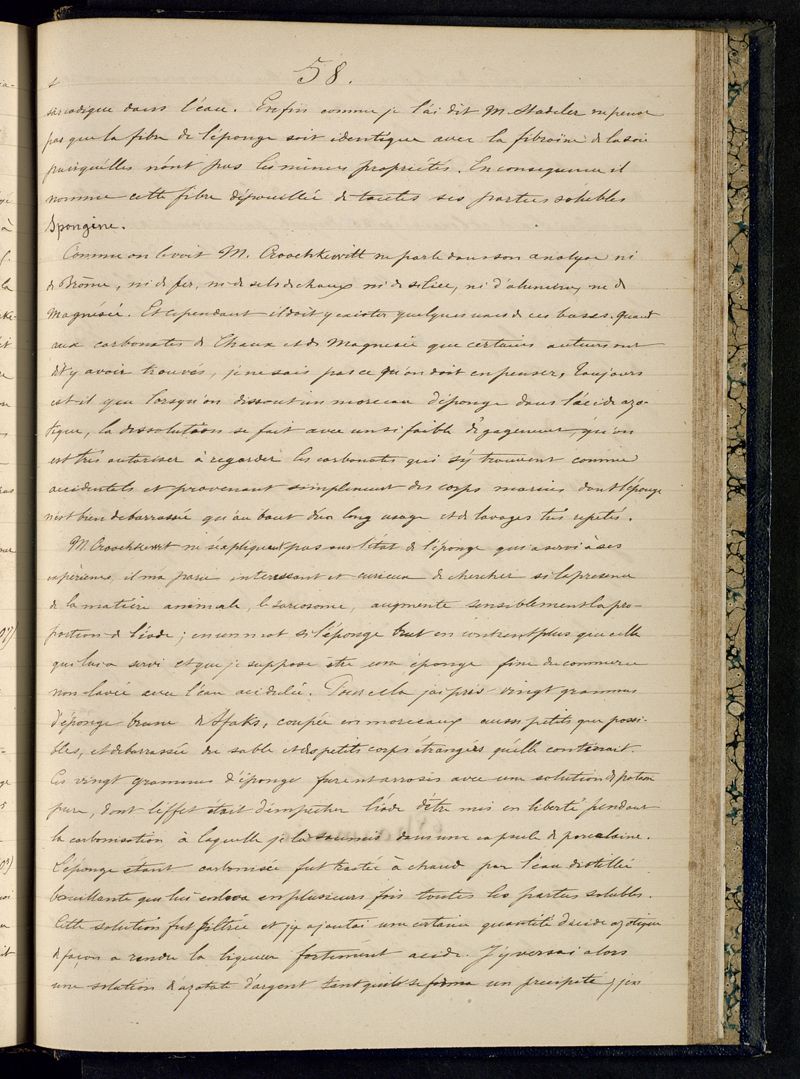 58.
sarcodique dans l'eau. Enfin comme je l'ai dit M. Stadeler ne pense
pas que la fibre de l'éponge soit identique avec la fibroïne de la soie
puisqu'elles n'ont pas les mêmes propriétés. En consequence il
nomme cette fibre dépouillée de toutes ses parties solubles
Spongine.
Comme on le voit M. Croockewitt ne parle dans son analyse ni
de Brôme, ni de fer, ni de sels de chaux ni de silice, ni d'alumine, ni de
Magnésie. Et cependant il doit y exister quelques unes de ces bases. Quant
aux carbonates de Chaux et de Magnesie que certains auteurs ont
dit y avoir trouvés, je ne sais pas ce qu'on doit en penser, Toujours
est-il que lorsqu'on dissout un morceau d'éponge dans l'acide azo-
tique, la dissolution se fait avec un si faible dégagement, qu'on
est très autoriser à regarder les carbonates qui s'y trouvent comme
accidentels et provenant simplement des corps marins dont l'éponge
n'est bien debarrassée qu'au bout d'un long usage et de lavages très repetés.
M. Croockewitt ne s'expliquant pas sur l'état de l'éponge qui a servi à ses
expériences, il m'a paru interessant et curieux de chercher si la presence
de la matière animale, le sarcosome, augmente sensiblement la pro-
portion de l'iode; en un mot si l'éponge brut en contient plus que celle
qui lui a servi et que je suppose être une éponge fine du commerce
non lavée avec l'eau acidulée. Pour cela j'ai pris vingt grammes
d'éponge brune de Sfaks, coupée en morceaux aussi petits que possi-
bles, et debarrassée du sable et des petits corps étrangers qu'elle contenait.
Ces vingt grammes d'éponge furent arrosés avec une solution de potasse
pure, dont l'effet était d'empêcher l'iode d'être mis en liberté pendant
la carbonisation à laquelle je la soumis dans une capsule de porcelaine.
L'éponge étant carbonisée fut traitée à chaud par l'eau distillée
bouillante qui lui enleva en plusieurs fois toutes les parties solubles.
Cette solution fut filtrée et j'y ajoutai une certaine quantité d'acide azotique
de façon a rendre la liqueur fortement acide. J'y versai alors
une solution d'azotate d'argent tant qu'il se forma un precipité; j'en